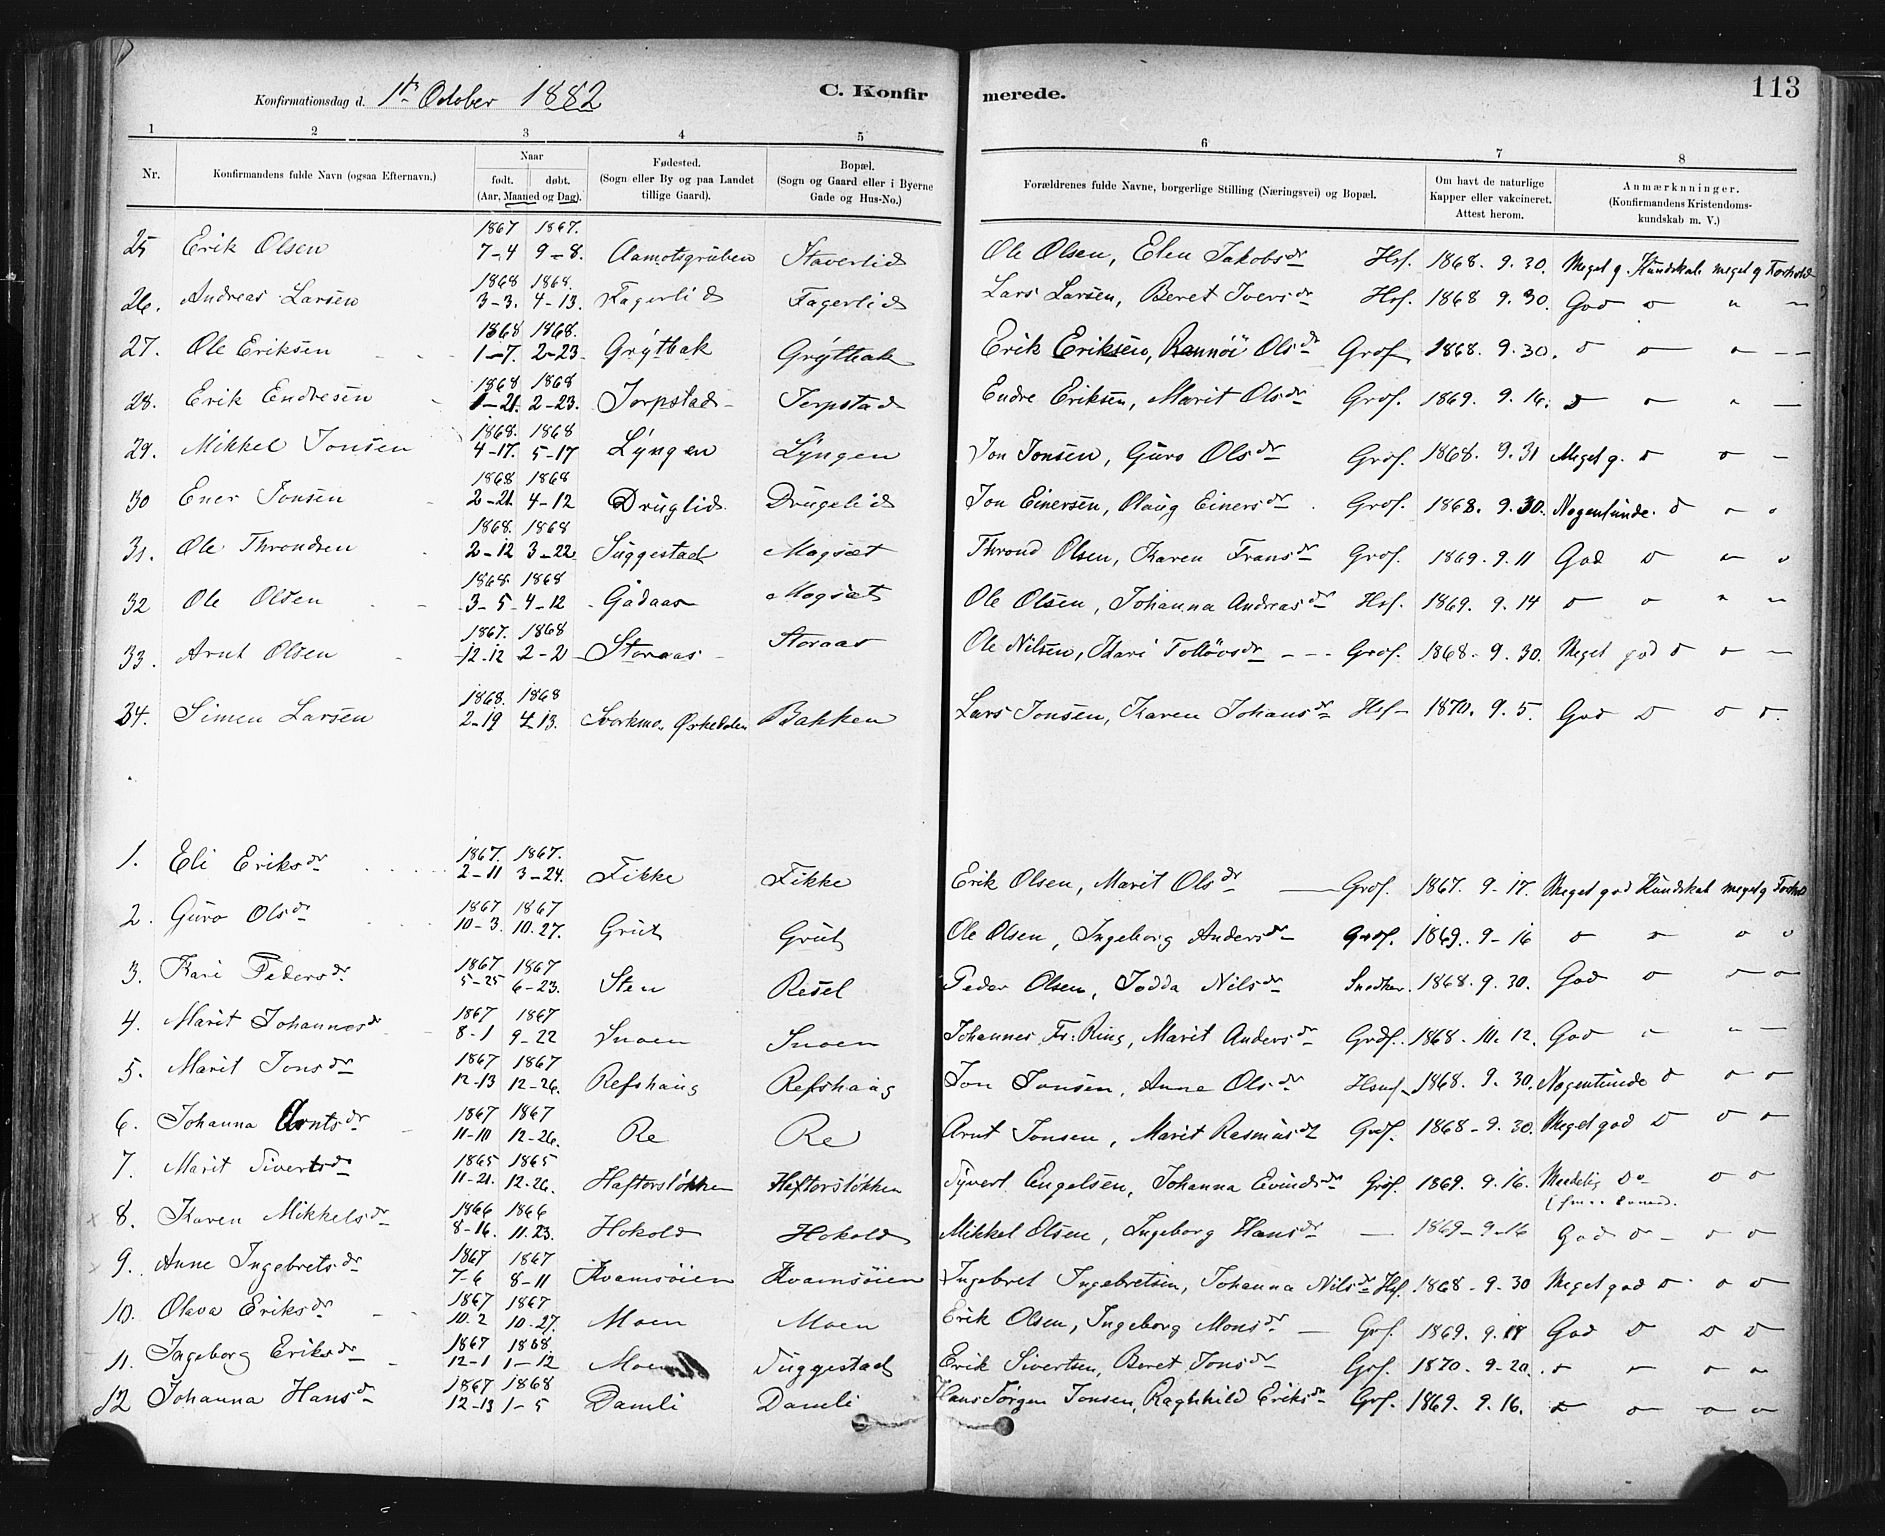 113
Konfirmationsdag d. 1ste October 1882
C. Konfirmerede.
1 2 3 4 5 6 7 8
Nr. | Konfirmandens fulde Navn (ogsaa Efternavn.) | Naar født. døbt. (Aar, Maaned og Dag). | Fødested. (Sogn eller By og paa Landet tillige Gaard). | Bopæl. (Sogn og Gaard eller i Byerne Gade og Hus-No.) | Forældrenes fulde Navne, borgerlige Stilling (Næringsvei) og Bopæl. | Om havt de naturlige Kapper eller vakcineret. Attest herom. | Anmærkninger. (Konfirmandens Kristendomskundskab m. V.)
25 Erik Olsen 1867 7-4 1867. 9-8. Aamotsgruben Staverlid Ole Olsen, Elen Jakobsdr Hsf. 1868. 9. 30. Meget g. Kundskab meget g Forhold
26. Andreas Larsen 1868 3-3. 1868. 4-13. Fagerlid Fagerlid Lars Larsen, Beret Iversdr Hsf. 1868 9. 30. God o " —
27. Ole Eriksen 1868 1-7. 1868. 2-23. Grytbak Grytbak Erik Eriksen, Rannöi Olsdr Grdf. 1868. 9. 30. o o - —
28. Erik Endresen 1868 1-21. 1868 2-23. Jerpstad Jerpstad Endre Eriksen, Marit Olsdr Grdf. 1869. 9. 16. o o " —
29. Mikkel Jonsen 1868. 4-17. 1868 5-17 Lyngen Lyngen Jon Jonsen, Guro Olsdr Grdf. 1868. 9. 31 Meget g. o o —
30 Ener Jonsen 1868 2-21. 1868 4-12 Druglid Drugelid Jon Einersen, Olaug Einersdr Grdf. 1868. 9. 30. Nogenlunde. o - o
31. Ole Throndsen 1868. 2-12 1868 3-22 Suggestad Mogsæt Thrond Olsen, Karen Fransdr Grdf. 1869. 9. 11 God o - o
32 Ole Olsen 1868. 3-5 1868 4-12 Gadaas Mogsæt Ole Olsen, Johanna Andreasdr Hsf. 1869. 9. 14 o o " —
33. Arnt Olsen 1867. 12-12 1868 2-2 Storaas Storaas Ole Nilsen, Kari Tollövsdr Grdf. 1868. 9. 30. Meget god o o —
34. Simen Larsen 1868. 2-19 1868 4-13. Svorkmo. Ørkedalen Bakken Lars Jonsen, Karen Johansdr Hsf 1870. 9. 5. God o o o.
1. Eli Eriksdr 1867. 2-11 1867. 3-24. Fikke Fikke Erik Olsen, Marit Olsdr Grdf. 1867. 9. 17. Meget god Kundskab meget g Forho
2. Guro Olsdr 1867 10-3. 1867 10.27. Grut Grut Ole Olsen, Ingeborg Andersdr Grdf. 1869. 9-16 o o o o
3. Kari Pedersdr 1867 5-25 1867 6-23. Sten Resel Peder Olsen, Jodda Nilsdr Snedker. 1868. 9. 30. God o - o
4. Marit Johannesdr 1867 8-1 1867 9-22 Snoen Snoen Johannes Fr. Ring, Marit Andersdr Grdf. 1868. 10. 12. God " " —
5. Marit Jonsdr 1867 12-13 1867 12-26. Refshaug Refshaug Jon Jonsen, Anne Olsdr Hsmf 1868. 9. 30. Nogenlunde o - o
6. Johanna Arntsdr 1867 11-10 1867 12-26. Re Re Arnt Jonsen, Marit Rasmusdr Grdf. 1868-9. 30. Meget god o o o
7. Marit Sivertsdr 1865 11-21. 1865 12-26. Haftorsløkken Haftorsløkken Syvert Engelsen, Johanna Evindsdr Grdf. 1869. 9. 16. Maadelig Do o o
x 8. Karen Mikkelsdr 1866 8-16. 1866 11.23. Hokold Hokold Mikkel Olsen, Ingeborg Hansdr — 1869-9-16 God o - o o
x 9. Anne Ingebretsdr 1867 7-6 1867 8-11 Kvamsøien Kvamsøien Ingebret Ingebretsen, Johanna Nilsdr Hsf. 1868-9. 30 Meget god o o o
10. Olava Eriksdr 1867 10.2 1867 10-27. Moen Moen Erik Olsen, Ingeborg Monsdr Grdf. 1869. 9. 18 God o o o
11. Ingeborg Eriksdr 1867 12-1 1868. 1-12 Moen Suggestad Erik Sivertsen, Beret Jonsdr Grdf. 1870. 9-20. o - o o
12 Johanna Hansdr 1867 12-13 1868 1-5 Damli Damli Hans Jörgen Jonsen, Raghhild Eriksdr Grdf. 1869. 9. 16. o o o o